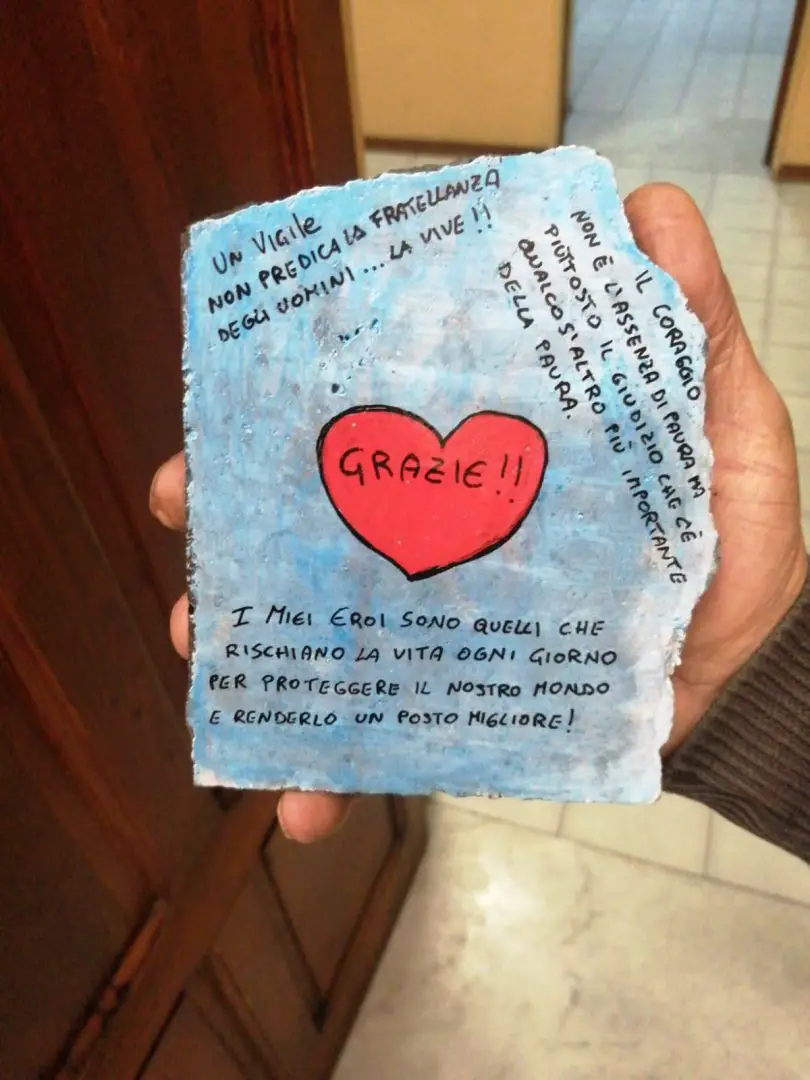 UN VIGILE
NON PREDICA LA FRATELLANZA
DEGLI UOMINI ... LA VIVE !!
...
IL CORAGGIO
NON È L'ASSENZA DI PAURA MA
PIUTTOSTO IL GIUDIZIO CHE C'È
QUALCOS'ALTRO PIÙ IMPORTANTE
DELLA PAURA.
GRAZIE!!
I MIEI EROI SONO QUELLI CHE
RISCHIANO LA VITA OGNI GIORNO
PER PROTEGGERE IL NOSTRO MONDO
E RENDERLO UN POSTO MIGLIORE!